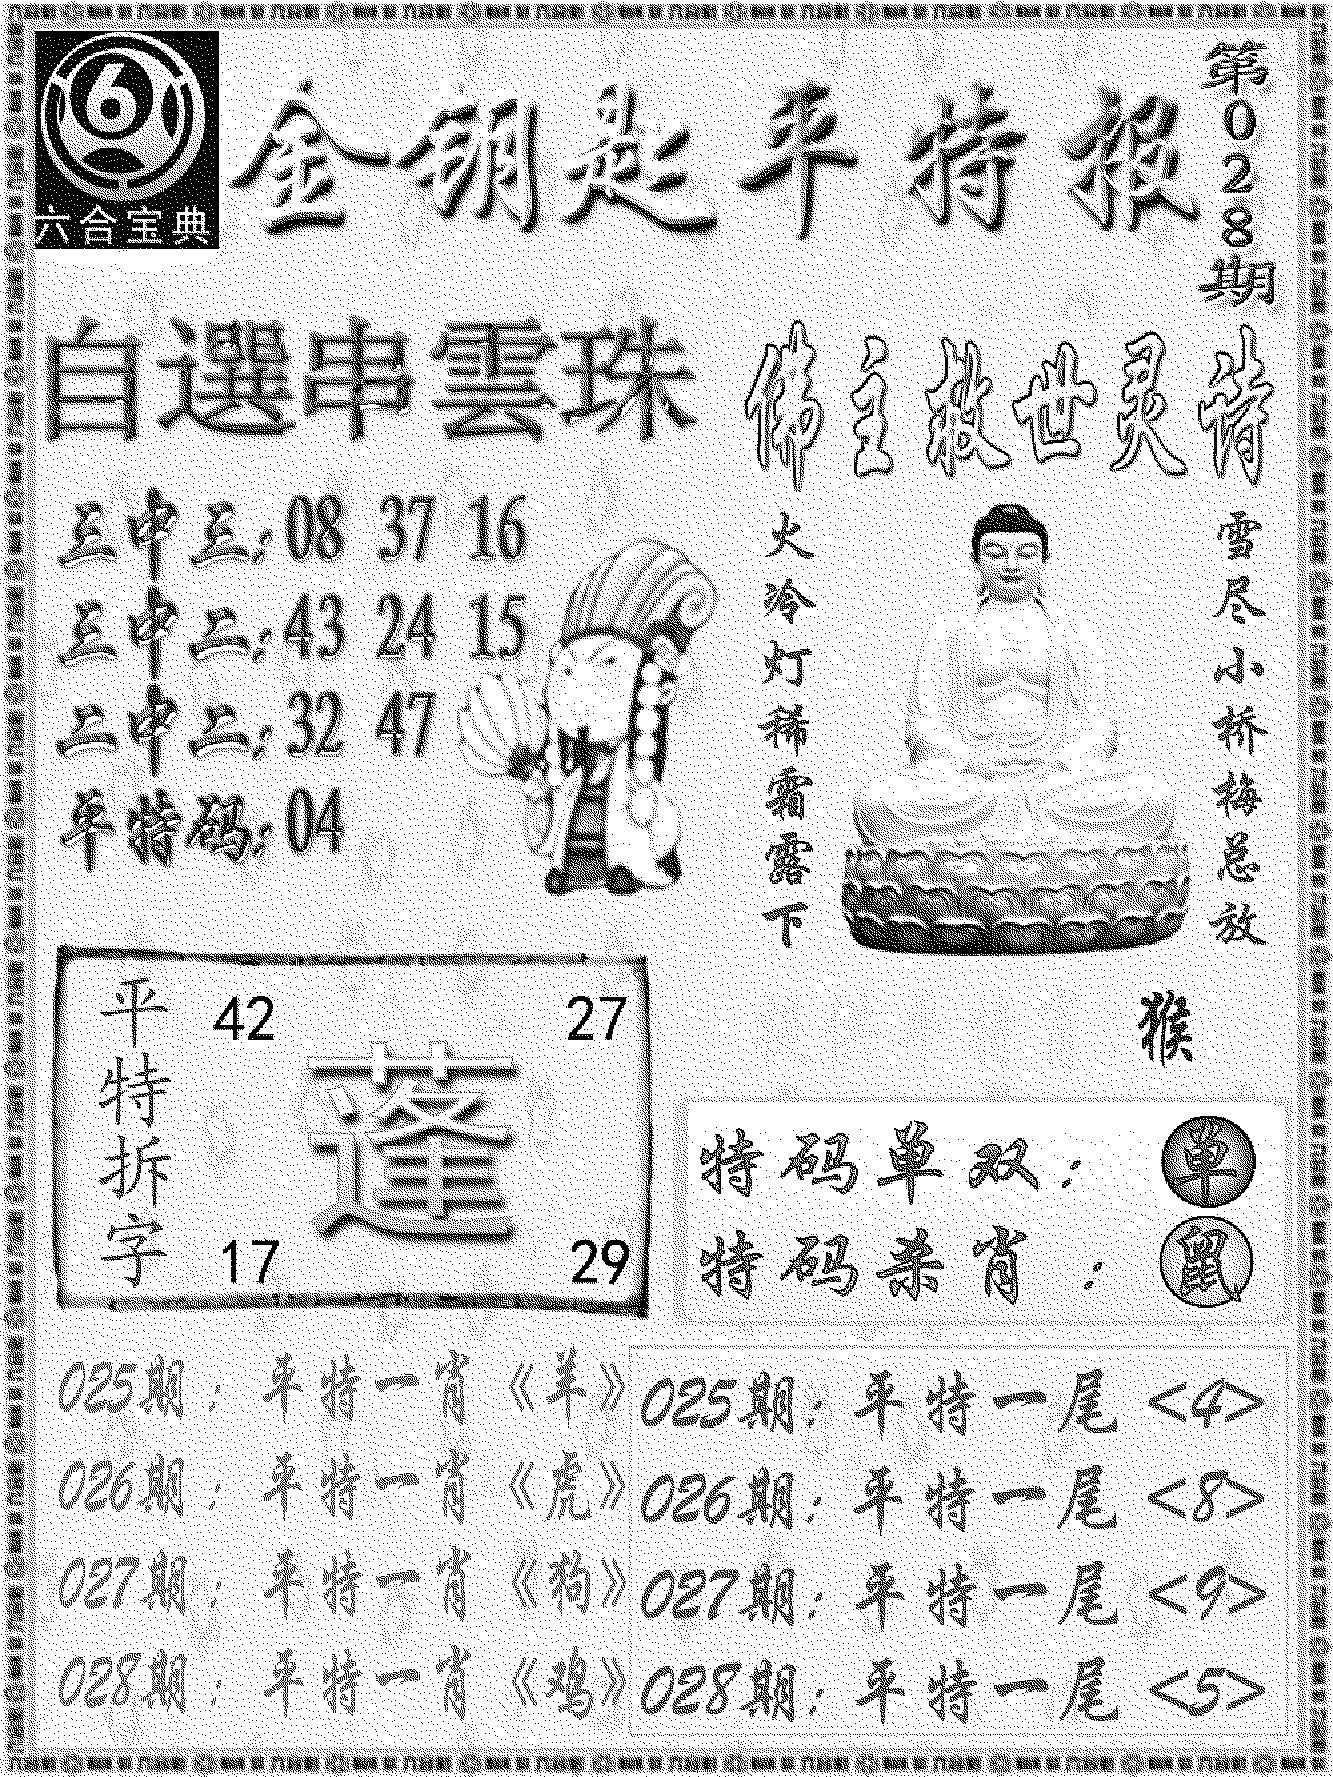 六合宝典
金钥匙平特报
第028期
自選串雲珠
三中三：08 37 16
三中二：43 24 15
二中二：32 47
单特码：04
佛主救世灵诗
雪尽小桥梅总放
火冷灯稀霜露下
猴
平特拆字
42 27
蓬
17 29
特码单双：单
特码杀肖：鼠
025期：平特一肖《羊》
026期：平特一肖《虎》
027期：平特一肖《狗》
028期：平特一肖《鸡》
025期：平特一尾<4>
026期：平特一尾<8>
027期：平特一尾<9>
028期：平特一尾<5>